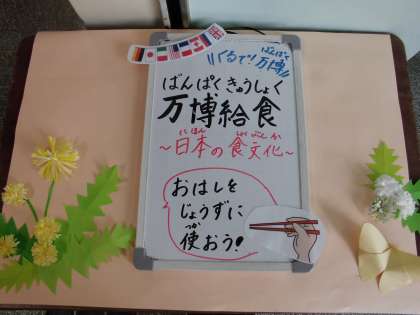 ばんぱく
\\くるぞ!万博//
ばんぱくきゅうしょく
万博給食
にほん しょくぶんか
～日本の食文化～
おはしを
じょうずに
つか
使おう!